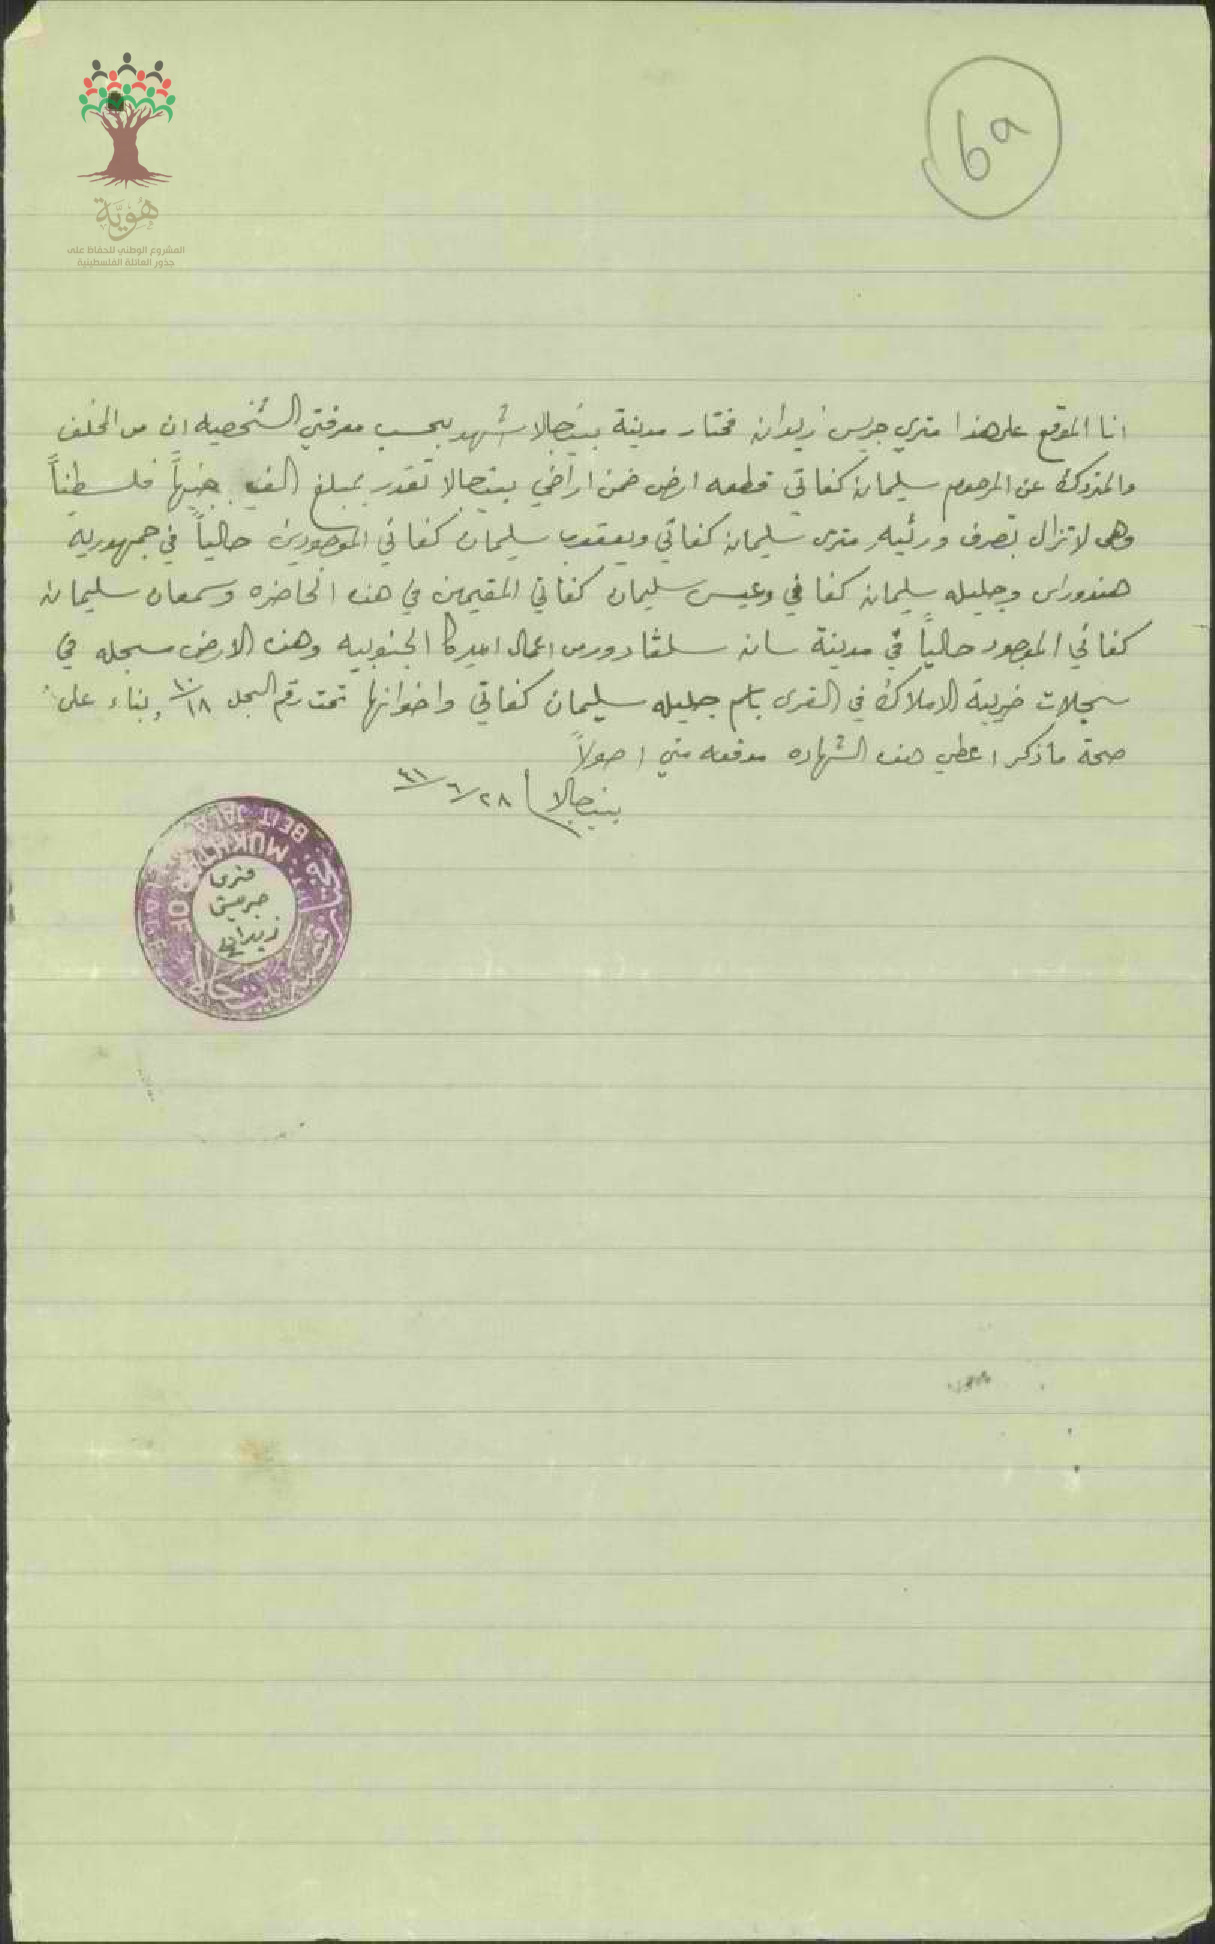 6a
هُوِيَّة
المشروع الوطني للحفاظ على
جذور العائلة الفلسطينية
انا الموقع على هذا متري جريس زيدان مختار مدينة بيتجالا اشهد بحسب معرفتي الشخصيه ان من المخلف
والمتروك عن المرحوم سليمان كفاتي قطعه ارض ضمن اراضي بيتجالا تقدر بمبلغ الف جنيهاً فلسطينياً
وهى لا تزال بتصرف ورثيه متري سليمان كفاتي ويعقوب سليمان كفاتي الموجودين حالياً في جمهورية
هندوراس وجليله سليمان كفاتي وعيسى سليمان كفاتي المقيمين في هذه الحاضره وسمعان سليمان
كفاتي الموجود حالياً في مدينة سان سلفادور من اعمال اميركا الجنوبيه وهذه الارض مسجله في
سجلات ضريبة الاملاك في القرى باسم جليله سليمان كفاتي واخوانها تحت رقم السجل ١٨/١٠ وبناء على
صحة ما ذكر اعطي هذه الشهاده موقعه مني اصولاً
بيتجالا ٢٨/٦/٤١
MUKHTAR OF
BEIT JALA
متري
جريس
زيدان